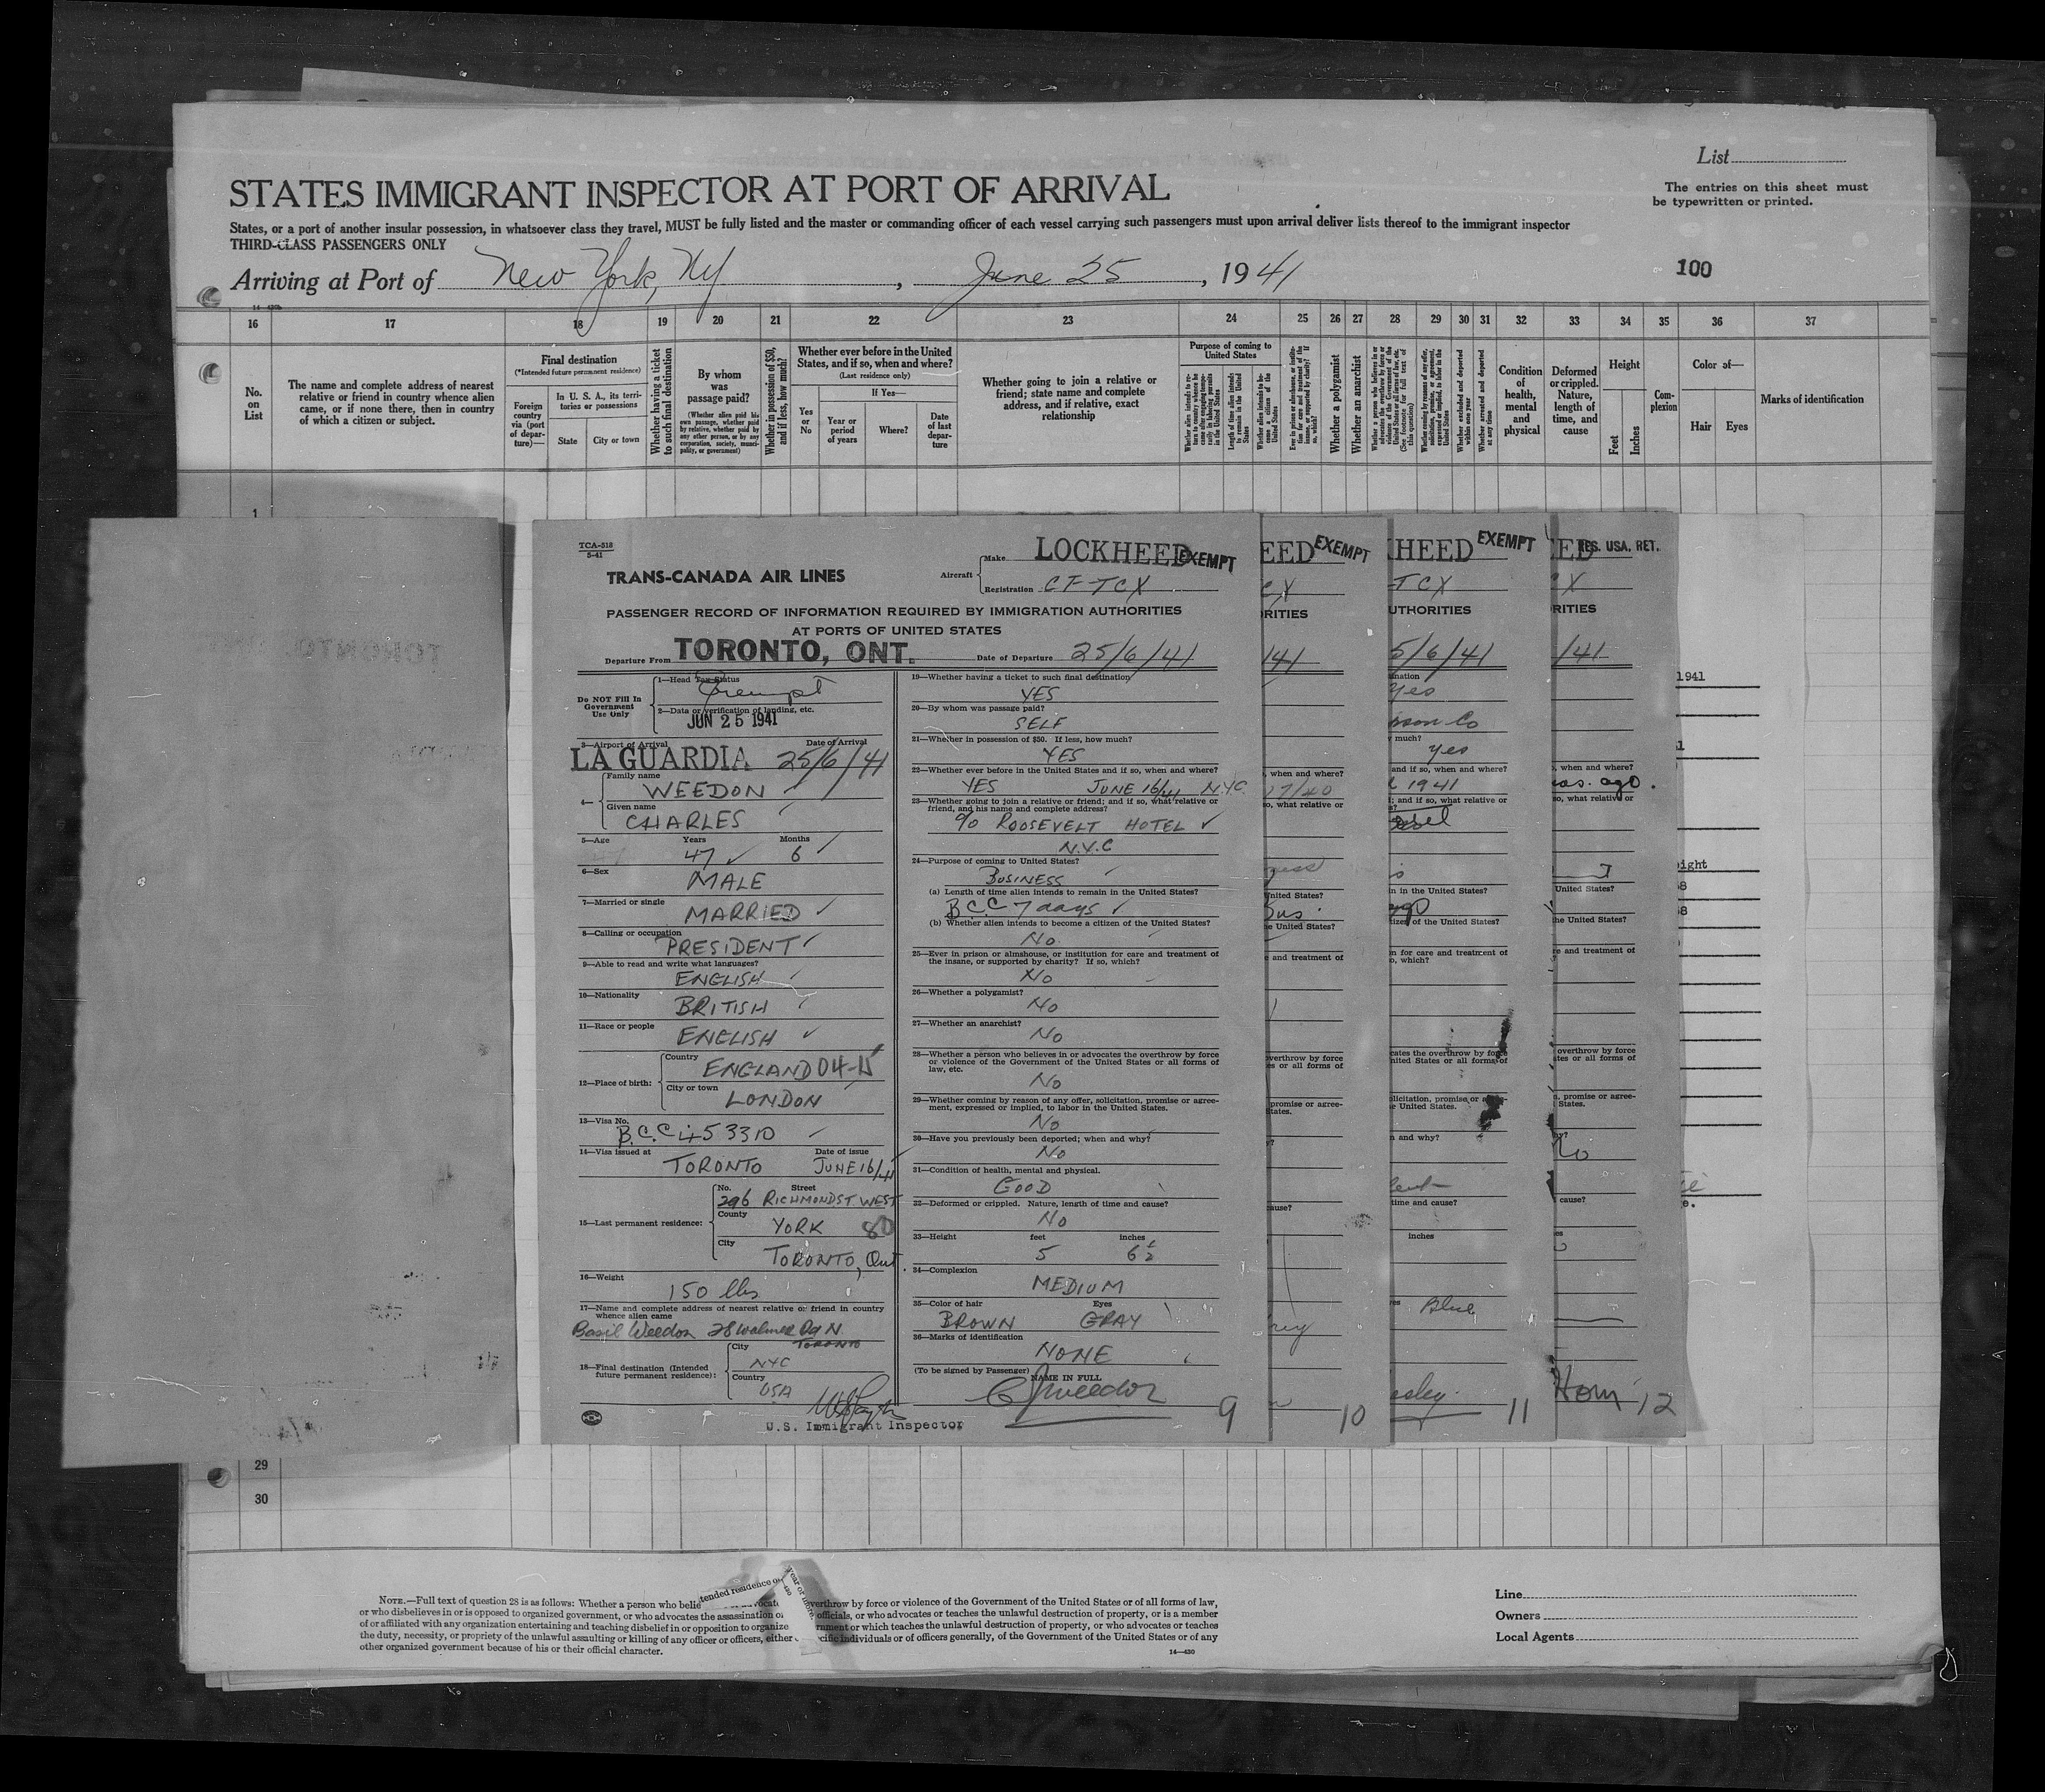 List
The entries on this sheet must
be typewritten or printed.
STATES IMMIGRANT INSPECTOR AT PORT OF ARRIVAL
States, or a port of another insular possession, in whatsoever class they travel, MUST be fully listed and the master or commanding officer of each vessel carrying such passengers must upon arrival deliver lists thereof to the immigrant inspector
THIRD-CLASS PASSENGERS ONLY
Arriving at Port of New York, NY, June 25, 1941
100
16 17 18 19 20 21 22 23 24 25 26 27 28 29 30 31 32 33 34 35 36 37
No. on List
The name and complete address of nearest
relative or friend in country whence alien
came, or if none there, then in country
of which a citizen or subject.
Final destination
(*Intended future permanent residence)
Foreign country via (port of departure)—
In U. S. A., its territories or possessions
State
City or town
Whether having a ticket to such final destination
By whom was passage paid?
(Whether alien paid his own passage, whether paid by relative, whether paid by any other person, or by any corporation, society, municipality, or government)
Whether in possession of $50, and if less, how much?
Whether ever before in the United
States, and if so, when and where?
(Last residence only)
Yes or No
If Yes—
Year or period of years
Where?
Date of last departure
Whether going to join a relative or
friend; state name and complete
address, and if relative, exact
relationship
Purpose of coming to United States
Length of time alien intends to remain in the United States
Whether alien intends to become a citizen of the United States
Whether a polygamist
Whether an anarchist
Whether arrested and deported within one year
Whether arrested and deported at any time
Condition of health, mental and physical
Deformed or crippled. Nature, length of time, and cause
Height
Feet
Inches
Complexion
Color of—
Hair
Eyes
Marks of identification
1
TCA-518
5-41
TRANS-CANADA AIR LINES
Aircraft
Make LOCKHEED EXEMPT
Registration CF-TCX
PASSENGER RECORD OF INFORMATION REQUIRED BY IMMIGRATION AUTHORITIES
AT PORTS OF UNITED STATES
Departure From TORONTO, ONT. Date of Departure 25/6/41
Do NOT Fill In
Government
Use Only
1—Head Tax Status
Exempt
2—Data or verification of landing, etc.
JUN 25 1941
3—Airport of Arrival Date of Arrival
LA GUARDIA 25/6/41
4— Family name
WEEDON
Given name
CHARLES
5—Age Years Months
47 6
6—Sex
MALE
7—Married or single
MARRIED
8—Calling or occupation
PRESIDENT
9—Able to read and write what languages?
ENGLISH
10—Nationality
BRITISH
11—Race or people
ENGLISH
12—Place of birth:
Country
ENGLAND
City or town
LONDON
13—Visa No.
B.C.C 453310
14—Visa issued at Date of issue
TORONTO JUNE 16/41
15—Last permanent residence:
No. Street
296 RICHMOND ST. WEST
County
YORK 80
City
TORONTO, Ont.
16—Weight
150 lbs
17—Name and complete address of nearest relative or friend in country
whence alien came
Basil Weedon 28 Walmer Rd N.
TORONTO
18—Final destination (Intended
future permanent residence):
City
NYC
Country
USA
U.S. Immigrant Inspector
19—Whether having a ticket to such final destination
YES
20—By whom was passage paid?
SELF
21—Whether in possession of $50. If less, how much?
YES
22—Whether ever before in the United States and if so, when and where?
YES JUNE 16/41 N.Y.C.
23—Whether going to join a relative or friend; and if so, what relative or
friend, and his name and complete address?
% ROOSEVELT HOTEL
N.Y.C
24—Purpose of coming to United States?
BUSINESS
(a) Length of time alien intends to remain in the United States?
B.C.C 7 days
(b) Whether alien intends to become a citizen of the United States?
No
25—Ever in prison or almshouse, or institution for care and treatment of
the insane, or supported by charity? If so, which?
No
26—Whether a polygamist?
No
27—Whether an anarchist?
No
28—Whether a person who believes in or advocates the overthrow by force
or violence of the Government of the United States or all forms of
law, etc.
No
29—Whether coming by reason of any offer, solicitation, promise or agree-
ment, expressed or implied, to labor in the United States.
No
30—Have you previously been deported; when and why?
No
31—Condition of health, mental and physical.
GOOD
32—Deformed or crippled. Nature, length of time and cause?
No
33—Height feet inches
5 6½
34—Complexion
MEDIUM
35—Color of hair Eyes
BROWN GRAY
36—Marks of identification
NONE
(To be signed by Passenger) NAME IN FULL
C Weedon
9
EED EXEMPT
CX
RITIES
/41
, when and where?
17/40
so, what relative or
United States?
Bus.
e United States?
e and treatment of
overthrow by force
es or all forms of
promise or agree-
States.
cause?
10
HEED EXEMPT
-TCX
UTHORITIES
5/6/41
ination
Yes
nson Co
much?
Yes
and if so, when and where?
1941
; and if so, what relative or
n in the United States?
tizen of the United States?
on for care and treatment of
o, which?
cates the overthrow by force
nited States or all forms of
olicitation, promise or agree-
e United States.
n and why?
time and cause?
inches
Blue
esley.
11
EED RES. USA. RET.
CX
RITIES
/41
, when and where?
os. ago.
so, what relative or
United States?
the United States?
re and treatment of
overthrow by force
tes or all forms of
n, promise or agree-
States.
No
cause?
12
1941
eight
29
30
NOTE.—Full text of question 28 is as follows: Whether a person who belie
tended residence o
verthrow by force or violence of the Government of the United States or of all forms of law,
or who disbelieves in or is opposed to organized government, or who advocates the assassination o officials, or who advocates or teaches the unlawful destruction of property, or is a member
of or affiliated with any organization entertaining and teaching disbelief in or opposition to organize rnment or which teaches the unlawful destruction of property, or who advocates or teaches
the duty, necessity, or propriety of the unlawful assaulting or killing of any officer or officers, either cific individuals or of officers generally, of the Government of the United States or of any
other organized government because of his or their official character.
14—430
Line
Owners
Local Agents